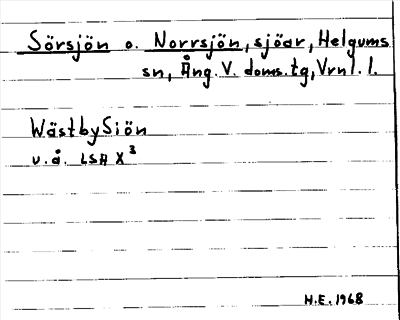 Sörsjön o. Norrsjön, sjöar, Helgums
sn, Ång. V. doms. tg, Vrnl. l.
WästbySiön
u.å. LSA X³
H.E. 1968